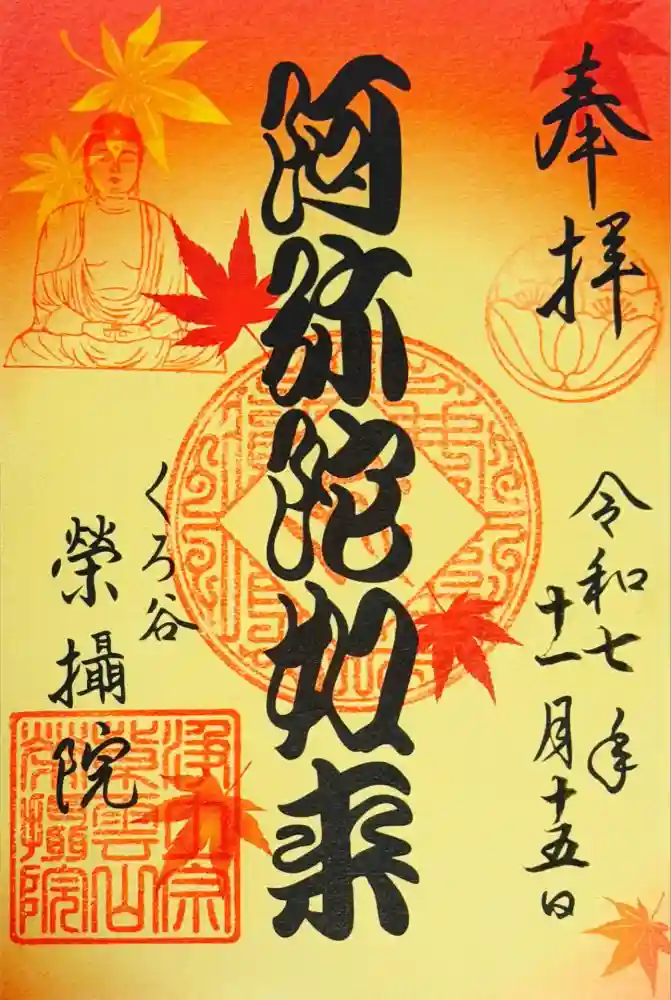 奉拝
令和七年
十一月十五日
阿弥陀如来
くろ谷
榮攝院
浄土宗
紫雲山
榮攝院